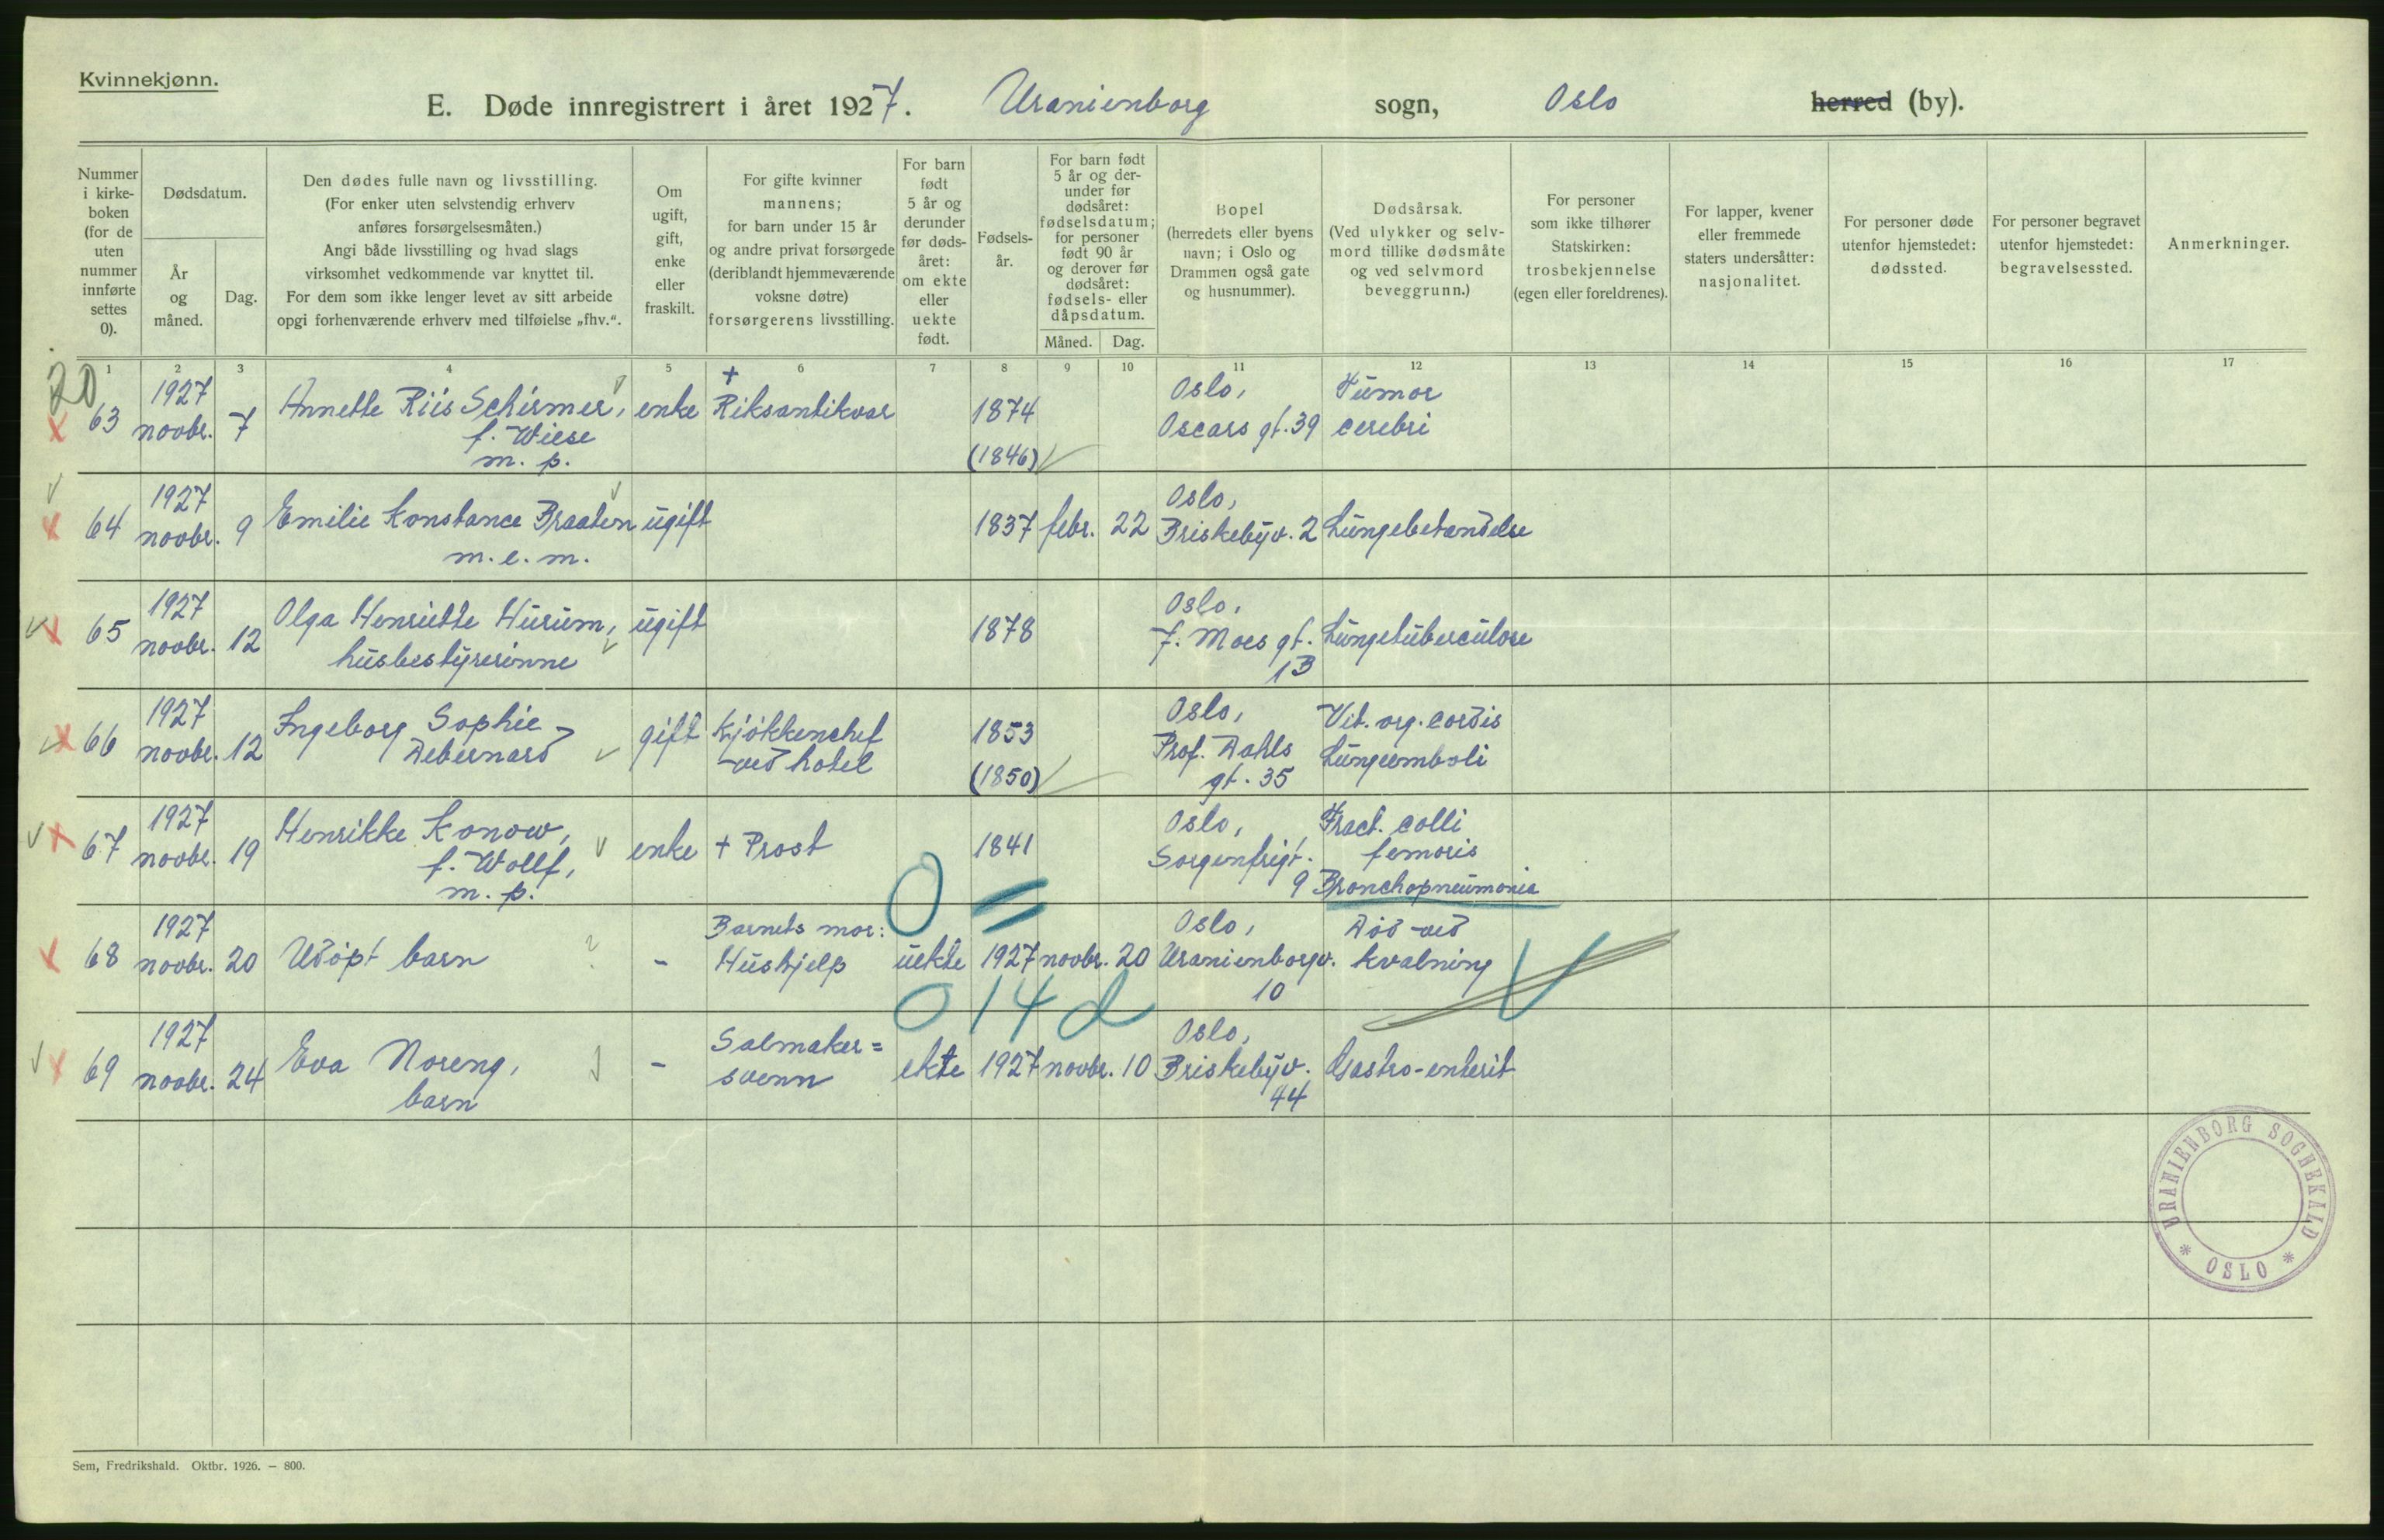 Kvinnekjønn.
E. Døde innregistrert i året 1927. Uranienborg sogn, Oslo herred (by).
Nummer i kirke-boken (for de uten nummer innførte settes 0).
Dødsdatum.
År og måned.
Dag.
Den dødes fulle navn og livsstilling.
(For enker uten selvstendig erhverv
anføres forsørgelsesmåten.)
Angi både livsstilling og hvad slags
virksomhet vedkommende var knyttet til.
For dem som ikke lenger levet av sitt arbeide
opgi forhenværende erhverv med tilføielse „fhv.“.
Om ugift, gift, enke eller fraskilt.
For gifte kvinner
mannens;
for barn under 15 år
og andre privat forsørgede
(deriblandt hjemmeværende
voksne døtre)
forsørgerens livsstilling.
For barn født 5 år og derunder før døds-året: om ekte eller uekte født.
Fødsels-år.
For barn født
5 år og der-
under før
dødsåret:
fødselsdatum;
for personer
født 90 år
og derover før
dødsåret:
fødsels- eller
dåpsdatum.
Måned. Dag.
Bopel
(herredets eller byens
navn; i Oslo og
Drammen også gate
og husnummer).
Dødsårsak.
(Ved ulykker og selv-
mord tillike dødsmåte
og ved selvmord
beveggrunn.)
For personer
som ikke tilhører
Statskirken:
trosbekjennelse
(egen eller foreldrenes).
For lapper, kvener
eller fremmede
staters undersåtter:
nasjonalitet.
For personer døde
utenfor hjemstedet:
dødssted.
For personer begravet
utenfor hjemstedet:
begravelsessted.
Anmerkninger.
1 2 3 4 5 6 7 8 9 10 11 12 13 14 15 16 17
20
1927 + Oslo, Tumor
63 novbr. 7 Annette Riis Schirmer, enke Riksantikvar 1874 Oscars gt. 39 cerebri
f. Wiese
m. p. (1846)
1927 Oslo,
64 novbr. 9 Emilie Konstance Braaten ugift 1837 febr. 22 Briskebyv. 2 Lungebetændelse
m. e. m.
1927 Oslo,
65 novbr. 12 Olga Henriette Hurum, ugift 1878 J. Moes gt. Lungetuberculose
husbestyrerinne 1B
1927 Ingeborg Sophie Oslo, Vit. org. cordis
66 novbr. 12 Debernard gift Kjøkkenchef 1853 Prof. Dahls Lungeemboli
ved hotel (1850) gt. 35
1927 Henrikke Konow, Oslo, Fract. colli
67 novbr. 19 f. Wollf, enke + Prost 1841 Sorgenfrigt. femoris
m. p. 9 Bronchopneumonia
0
1927 Barnets mor: Oslo, Død ved
68 novbr. 20 Udøpt barn ? - Hushjelp uekte 1927 novbr. 20 Uranienborgv. kvalning
10
014d
1927 Salmaker= Oslo,
69 novbr. 24 Eva Noreng, - svenn ekte 1927 novbr. 10 Briskebyv. Gastro-enterit
barn 44
URANIENBORG SOGNEKALD
* OSLO *
Sem, Fredrikshald. Oktbr. 1926. — 800.